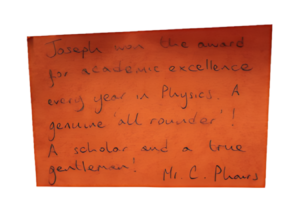 Joseph won the award
for academic excellence
every year in Physics. A
genuine 'all rounder'!
A scholar and a true
gentleman! Mr C.